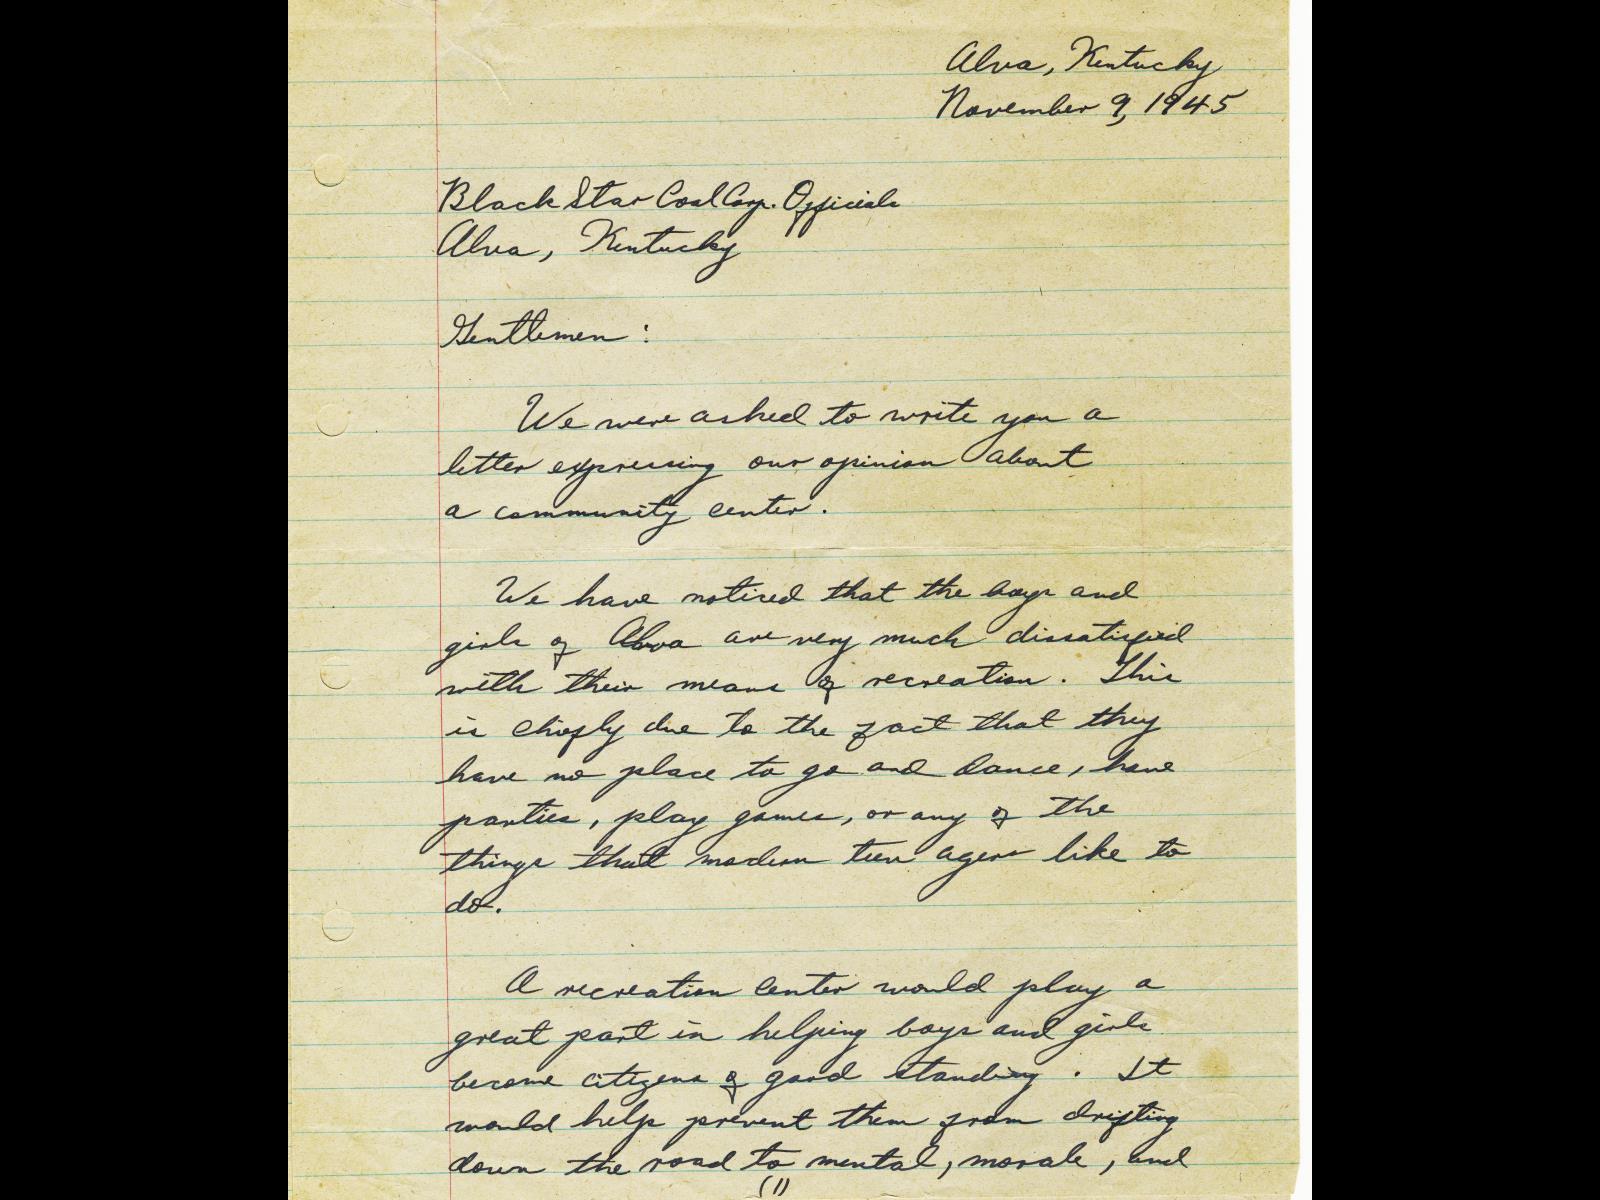 Alva, Kentucky
November 9, 1945
Black Star Coal Corp. Officials
Alva, Kentucky
Gentlemen :
We were asked to write you a
letter expressing our opinion about
a community center.
We have noticed that the boys and
girls of Alva are very much dissatisfied
with their means of recreation. This
is chiefly due to the fact that they
have no place to go and dance, have
parties, play games, or any of the
things that modern teen agers like to
do.
A recreation center would play a
great part in helping boys and girls
become citizens of good standing. It
would help prevent them from drifting
down the road to mental, morale, and
(1)